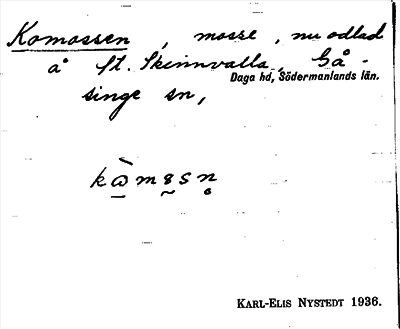 Komossen, mosse, nu odlad
å St. Skinnvalla, Gå-
Daga hd, Södermanlands län.
singe sn,
kɷ̀mɘsn̥
KARL-ELIS NYSTEDT 1936.